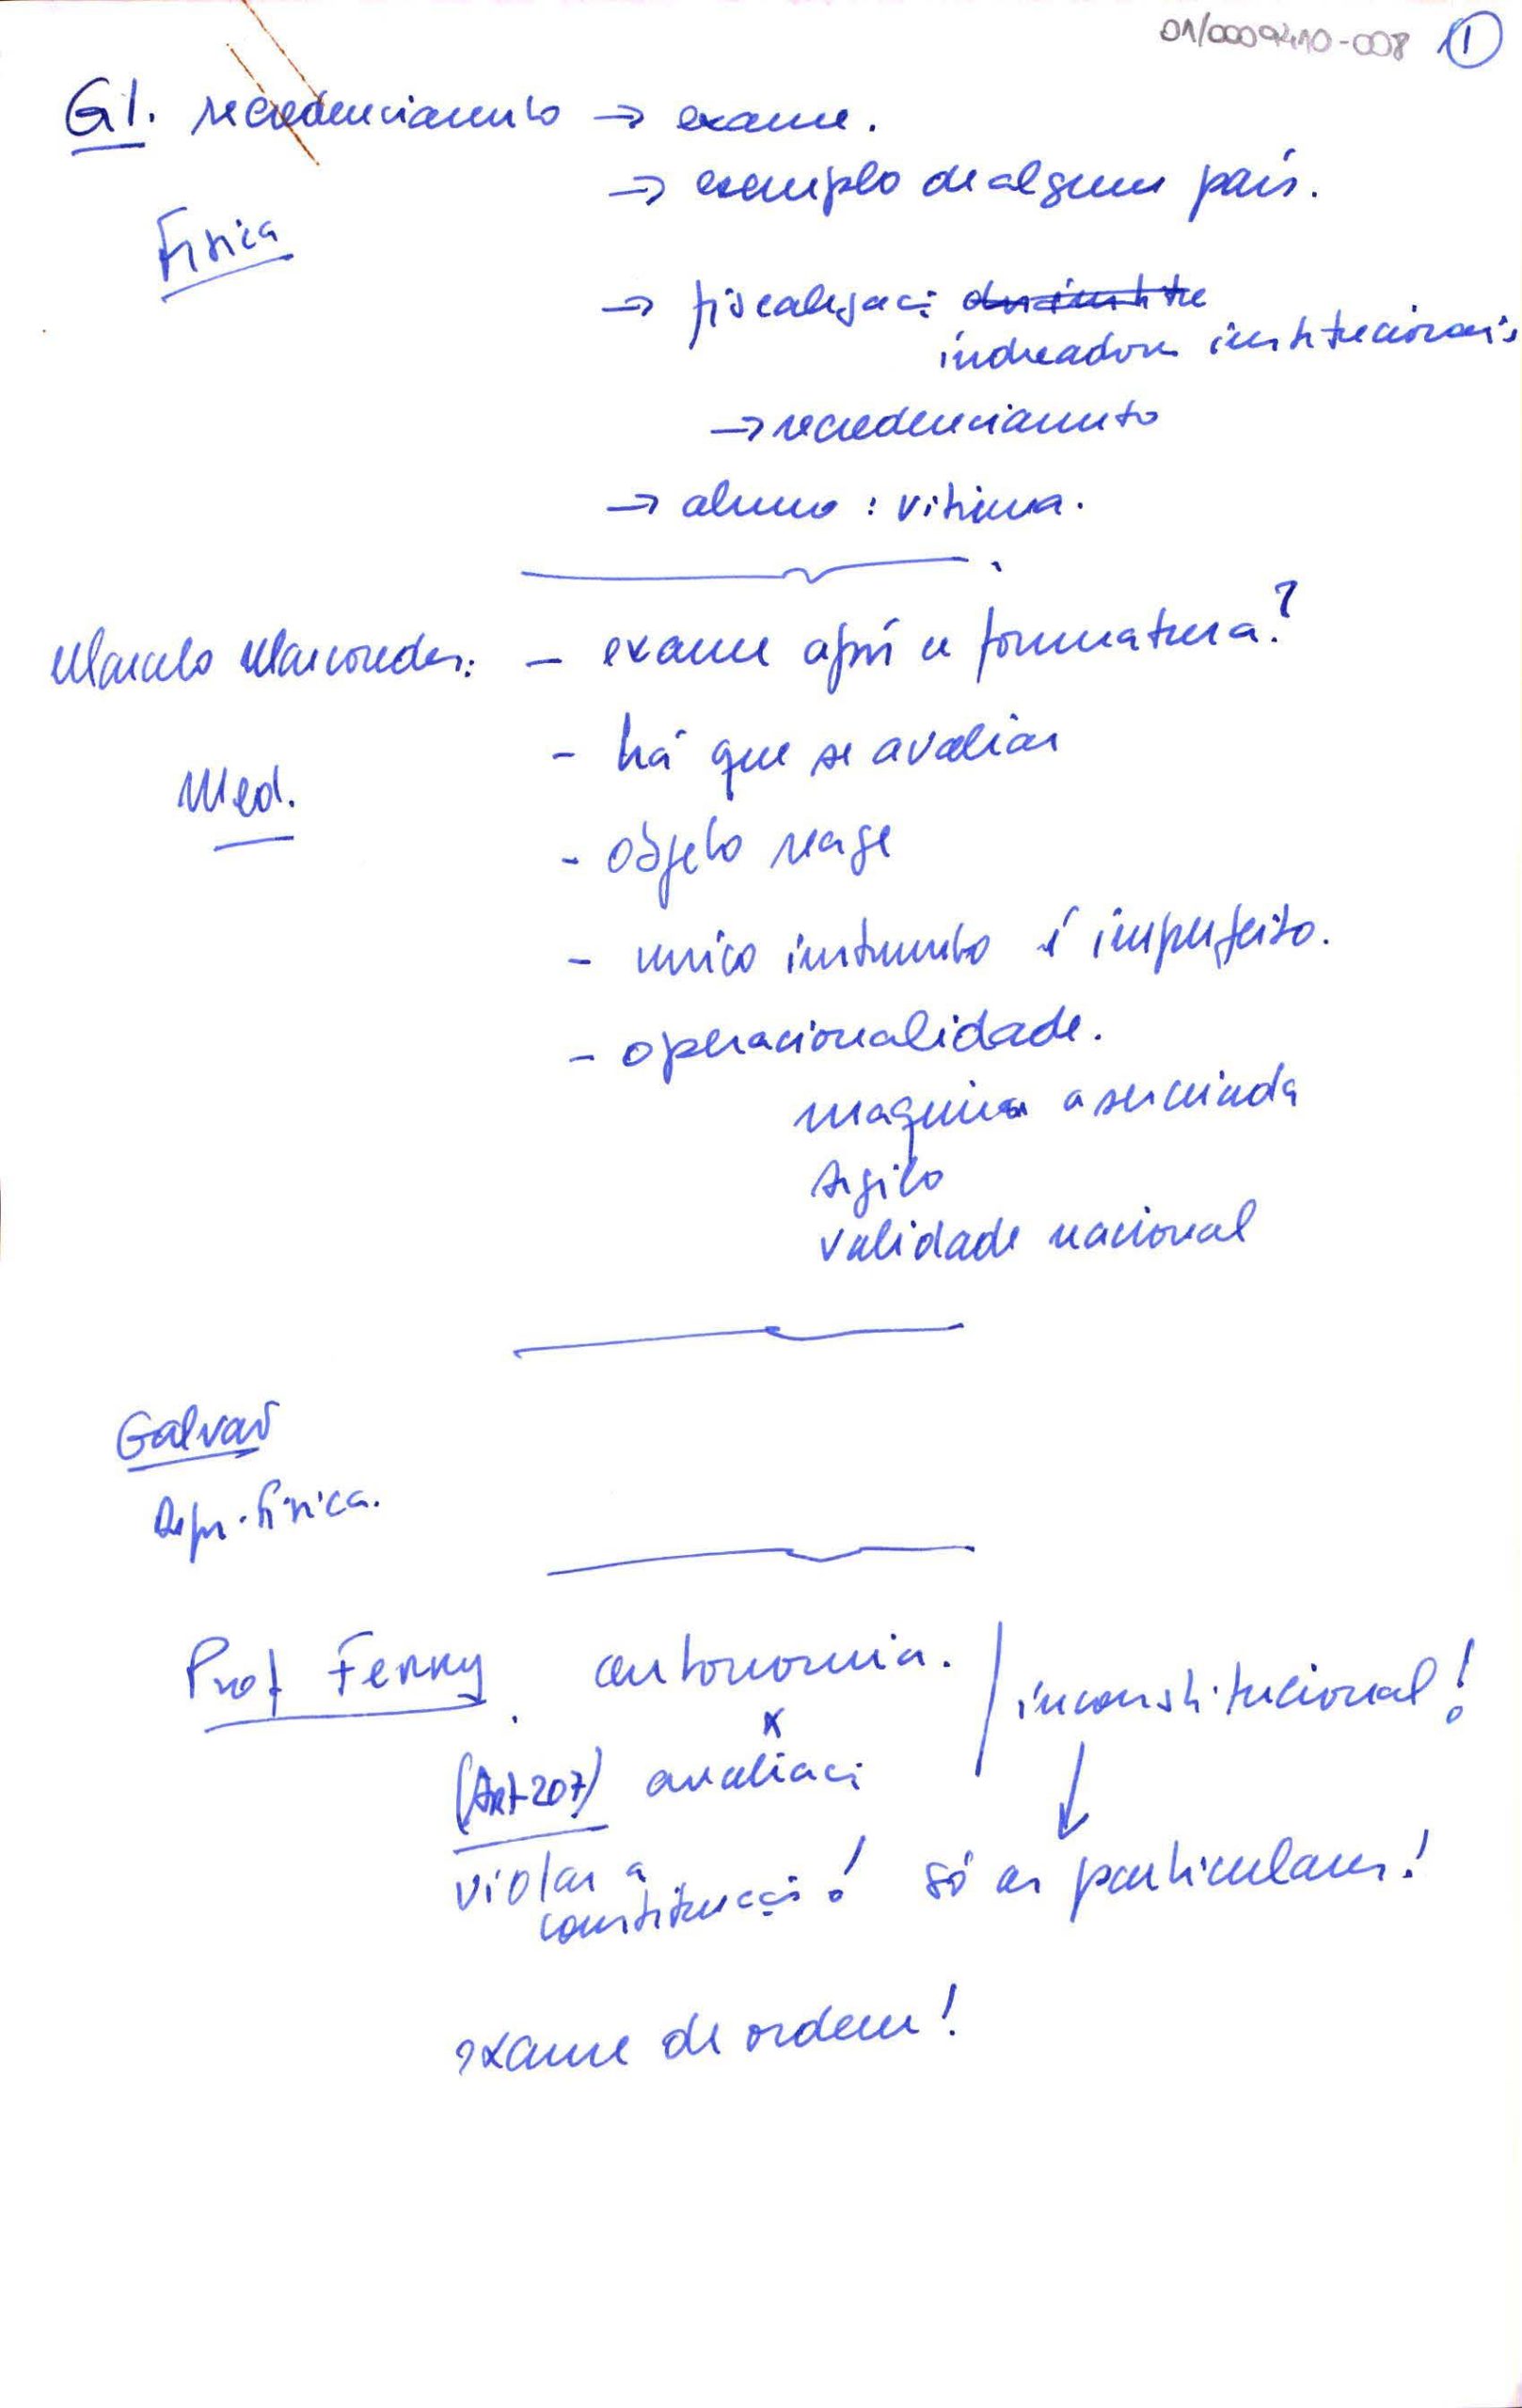 01/0009410-008 1
GI. recredenciamento → exame.
→ exemplo de algum país.
Física
→ fiscalizaci
indicadores institucionais
→ recredenciamento
→ aluno : vítima.
Marcelo Marcondes: - exame após a formatura?
- há que se avaliar
Med.
- objeto reage
- unico instrumento é imperfeito.
- operacionalidade.
maquina
sigilo
validade nacional
Galvaõ
Física.
Prof Ferry. autonomia. / inconstitucional!
x
(Art 207) avaliaci
↓
violar a constituiçãi! só as particulares!
exame de ordem!